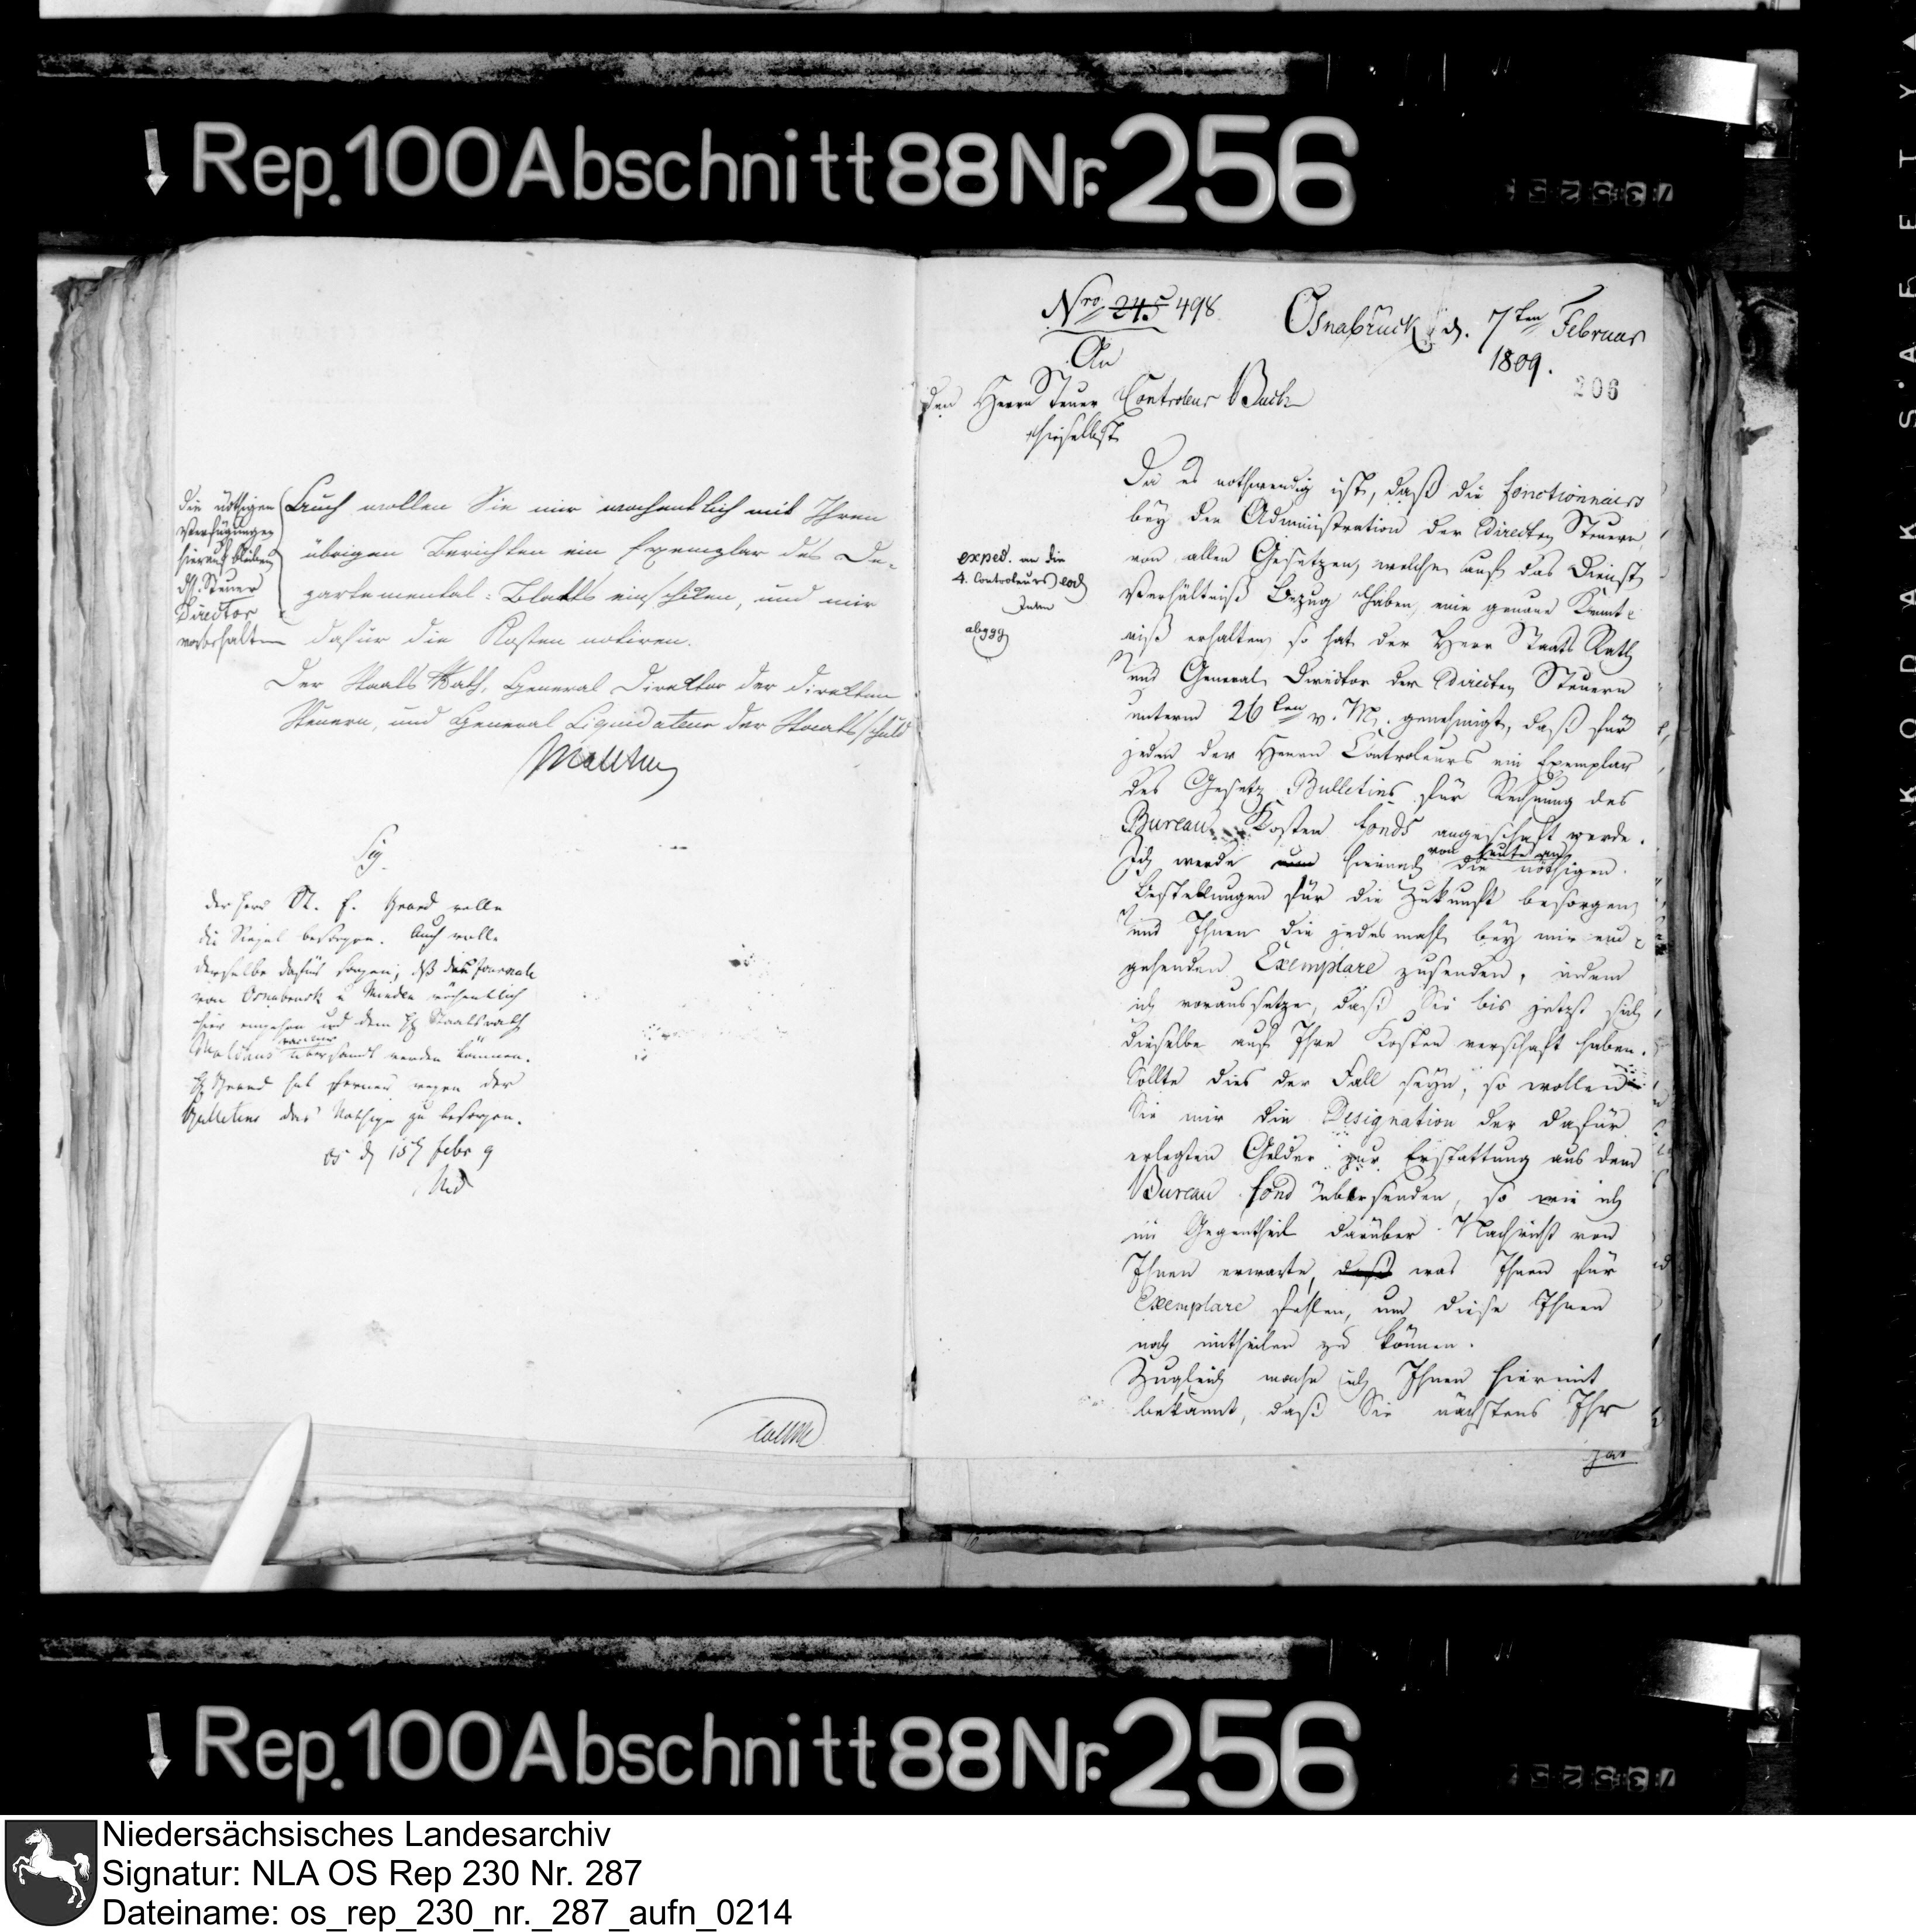 Rep. 100 Abschnitt 88 Nr. 256
die nöthigen
Verfügungen
hierauf bleiben
Steuer
Director
vorbehalten
Auch wollen Sie mir wochentlich mit Ihren
übrigen Berichten ein Exemplar des De-
partemental-Blatts einschicken, und mir
dafür die Kosten notiren.
Der Staats Rath, General Direktor der direkten
Steuern, und General Liquidateur der Staatsschuld
Malchus
der Herr wolle
die Siegel besorgen. Auch wolle
derselbe dafür sorgen, daß Journale
von Osnabruck u Minden wöchentlich
hier eingehen und dem Staatsrath
Malchus übersandt werden können.
hat ferner wegen der
Bulletins das Nothige zu besorgen.
15 febr 9
Nro 245 498
Osnabrück d. 7ten Februar
1809.
206
An
den Herrn Steuer Controleur Buch
hieselbst
exped. an die
4. Controleurs
Da es nothwendig ist, daß die fonctionnairs
bey der Administration der Directen Steuern
von allen Gesetzen, welche auf das Dienst
Verhältniß Bezug haben, eine genaue Kennt-
niß erhalten, so hat der Herr Staats Rath
und General Director der Directen Steuern
unterm 26ten v. M. genehmigt, daß für
jeden der Herrn Controleurs ein Exemplar
des Gesetz Bulletins für Rechnung des
Bureau Kosten fonds angeschaft werde.
von heute an
Ich werde nun hiernach die nöthigen
Bestellungen für die Zukunft besorgen,
und Ihnen die jedesmahl bey mir ein-
gehenden Exemplare zusenden, indem
ich voraussetze, daß Sie bis jetzt sich
dieselbe auf Ihre Kosten verschaft haben.
Sollte dies der Fall seyn, so wollen
Sie mir die Designation der dafür
erlegten Gelder zur Erstattung aus dem
Bureau fond übersenden, so wie ich
im Gegentheil darüber Nachricht von
Ihnen erwarte, daß was Ihnen für
Exemplare fehlen, um diese Ihnen
noch mittheilen zu können.
Zugleich mache ich Ihnen hiermit
bekannt, daß Sie nächstens Ihr
Rep. 100 Abschnitt 88 Nr. 256
KODAK SAFETY
Niedersächsisches Landesarchiv
Signatur: NLA OS Rep 230 Nr. 287
Dateiname: os_rep_230_nr._287_aufn_0214